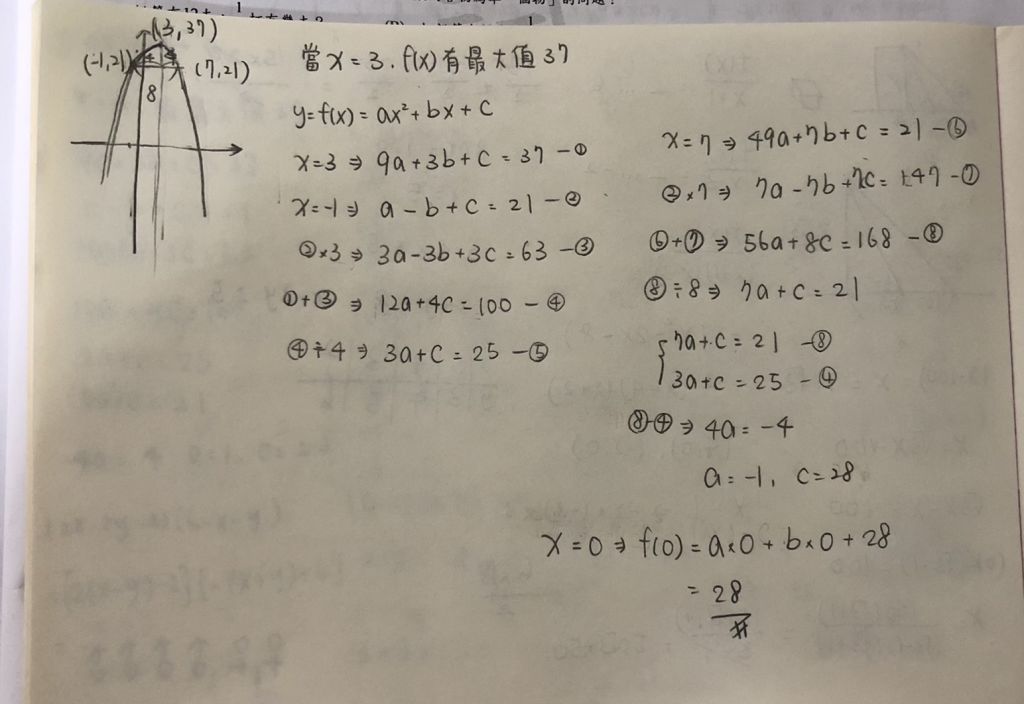 (3,37)
(-1,21)
(7,21)
4
8
當 x = 3 . f(x) 有最大值 37
y = f(x) = ax² + bx + c
x=3 ⇒ 9a+3b+c = 37 −①
x=-1 ⇒ a − b + c = 21 −②
②×3 ⇒ 3a−3b+3c = 63 −③
①+③ ⇒ 12a+4c = 100 − ④
④÷4 ⇒ 3a+c = 25 −⑤
x=7 ⇒ 49a+7b+c = 21 −⑥
②×7 ⇒ 7a−7b+7c = 147 −⑦
⑥+⑦ ⇒ 56a+8c = 168 −⑧
⑧÷8 ⇒ 7a+c = 21
7a+c = 21 −⑧
3a+c = 25 −④
⑧-④ ⇒ 4a = −4
a = −1, c = 28
x = 0 ⇒ f(0) = a×0 + b×0 + 28
= 28
#